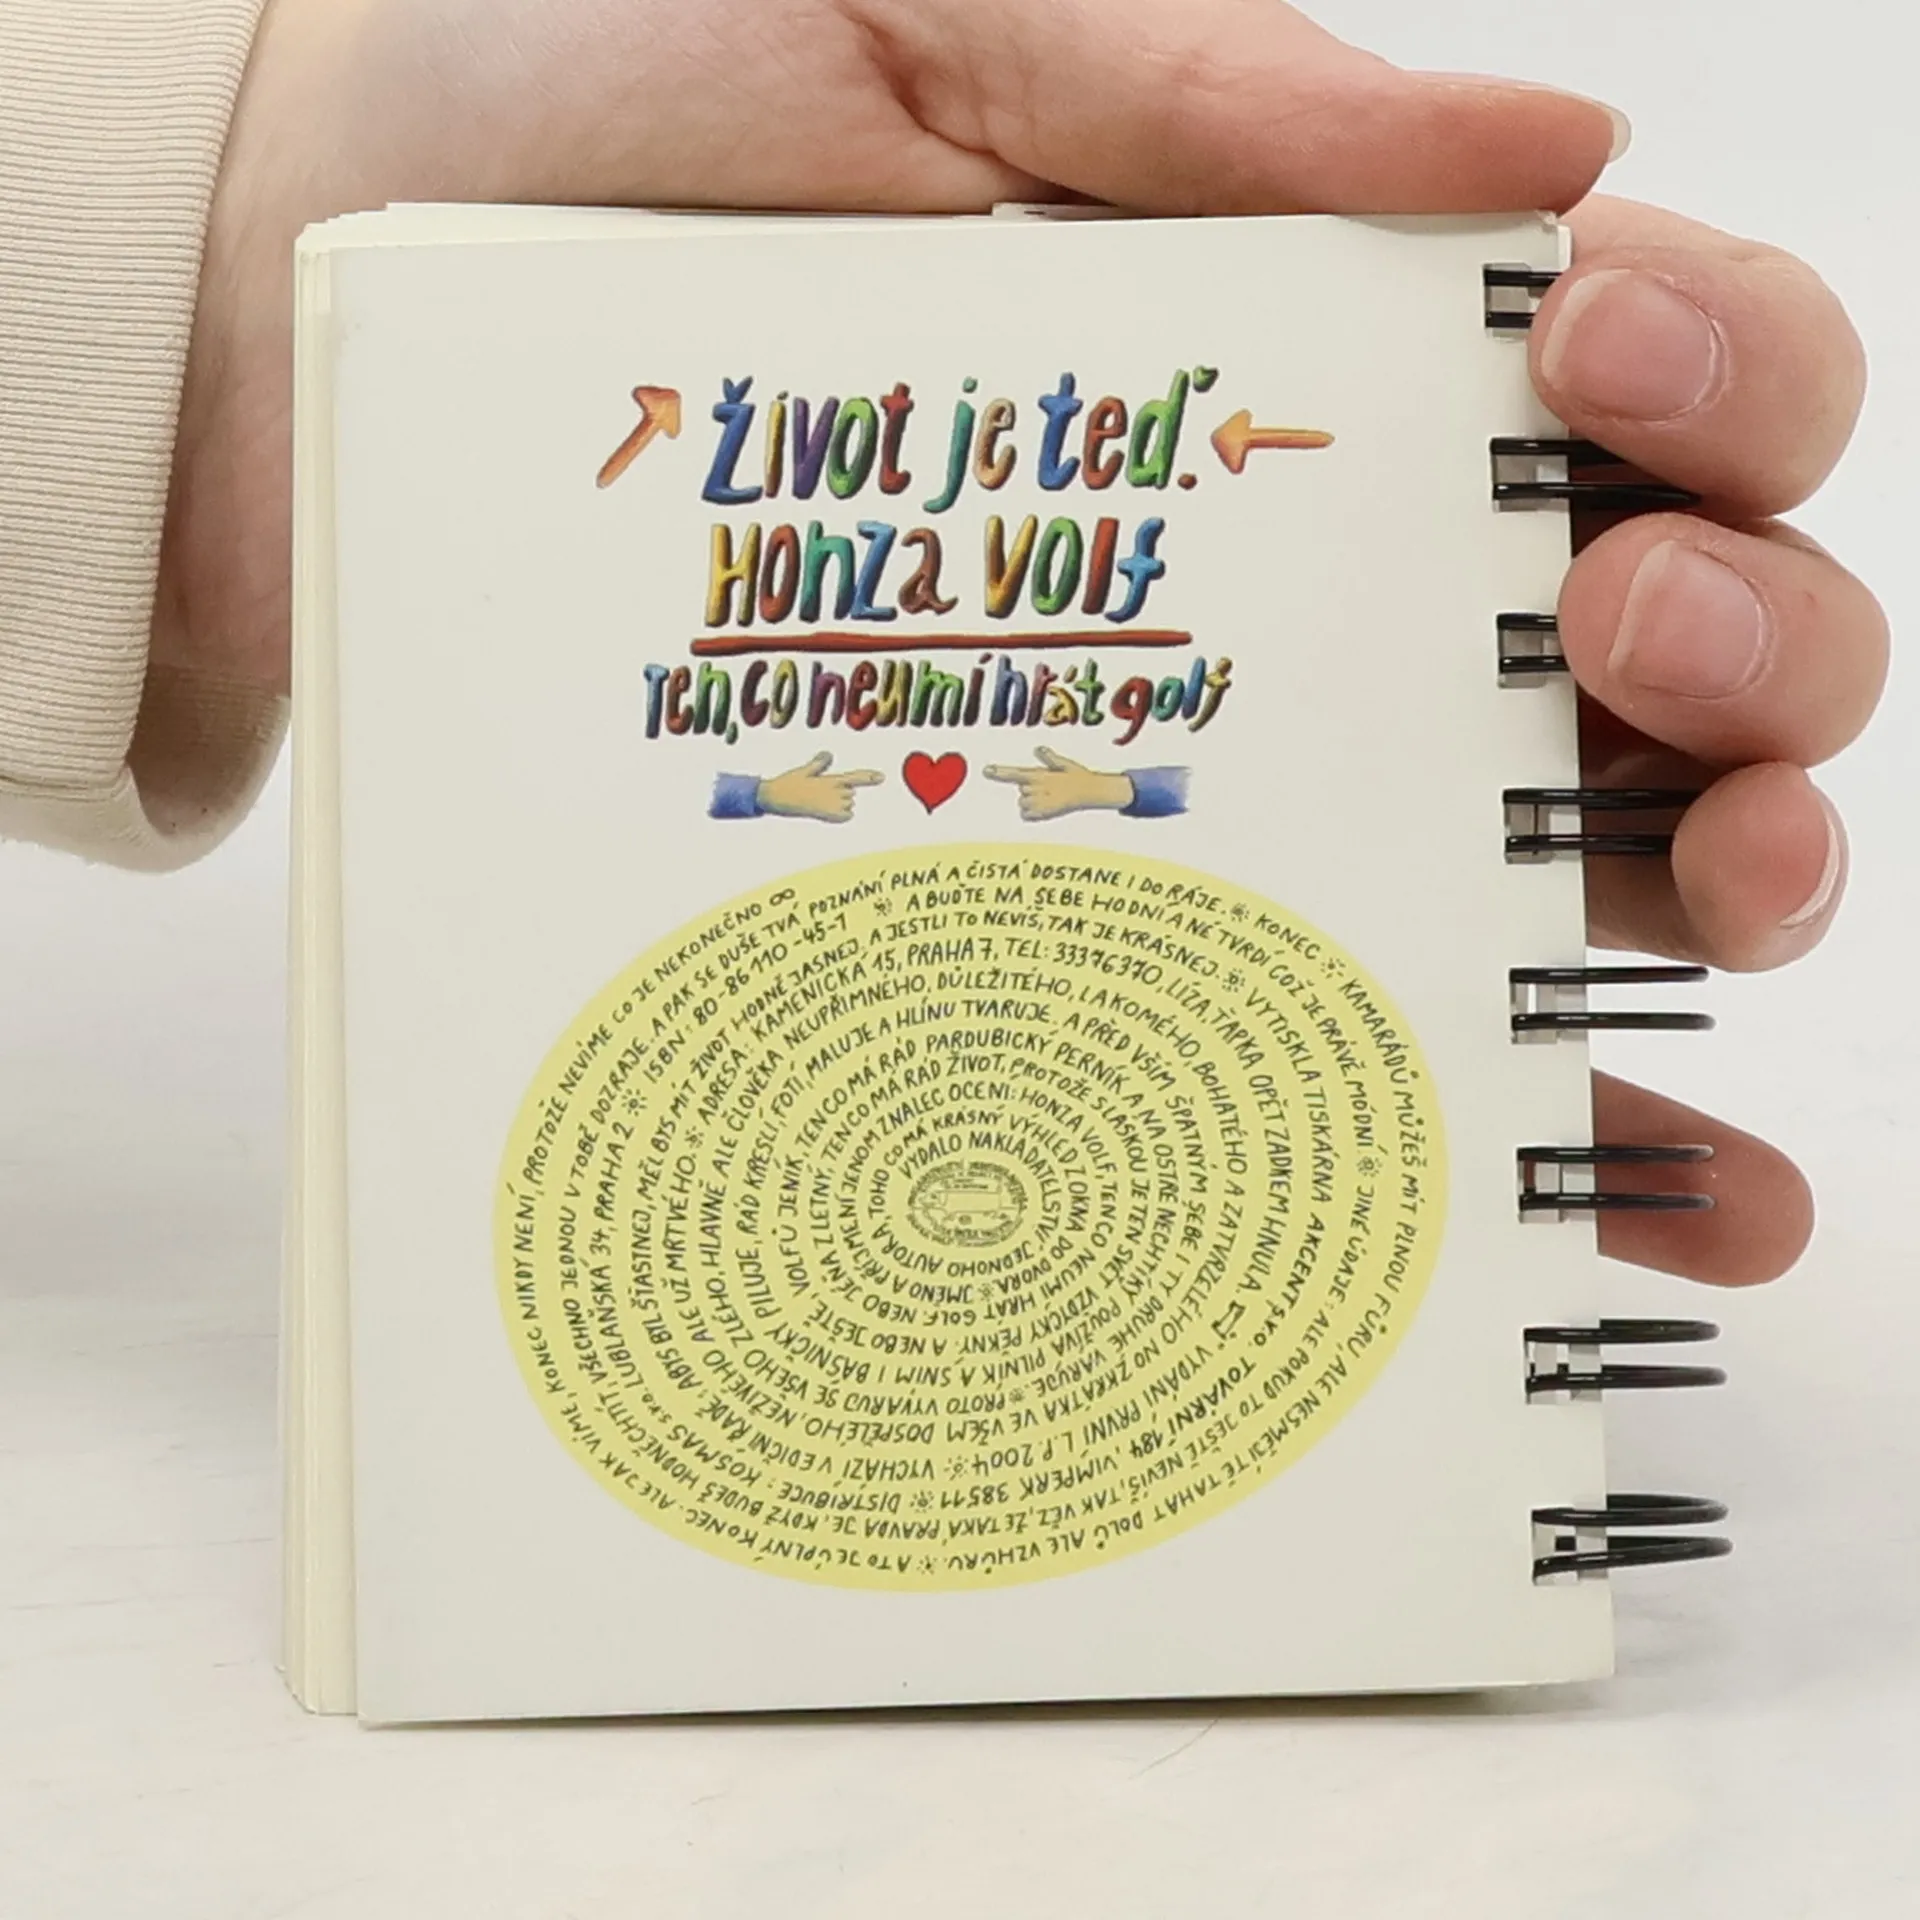 Život je teď.
Honza Volf
Ten, co neumí hrát golf
VYDALO NAKLADATELSTVÍ JEDNOHO AUTORA, TOHO CO MÁ KRÁSNÝ VÝHLED Z OKNA DO DVORA. ☼ JMÉNO A PŘÍJMENÍ JENOM ZNALEC OCENÍ: HONZA VOLF, TEN CO NEUMÍ HRÁT GOLF. NEBO JÉŇA Z LETNÝ, TEN CO MÁ RÁD ŽIVOT, PROTOŽE S LÁSKOU JE TEN SVĚT VŽDYCKY PĚKNÝ. A NEBO JEŠTĚ, VOLFŮ JENÍK, TEN CO MÁ RÁD PARDUBICKÝ PERNÍK A NA OSTRÉ NECHTÍKY POUŽÍVÁ PILNÍK A S NIM I BÁSNIČKY PILUJE, RÁD KRESLÍ, FOTÍ, MALUJE A HLÍNU TVARUJE. A PŘED VŠÍM ŠPATNÝM SEBE I TY DRUHÉ VARUJE. ☼ PROTO VYVARUJ SE VŠEHO ZLÉHO, HLAVNĚ ALE ČLOVĚKA NEUPŘÍMNÉHO, DŮLEŽITÉHO, LAKOMÉHO, BOHATÉHO A ZATVRZELÉHO NO ZKRÁTKA VE VŠEM DOSPĚLÉHO, NEŽIVÉHO ALE UŽ MRTVÉHO. ☼ ADRESA: KAMENICKÁ 15, PRAHA 7, TEL: 33376370, LÍZA, ŤAPKA OPĚT ZADKEM HNULA. VYDÁNÍ PRVNÍ L.P. 2004 ☼ VYCHÁZÍ V EDIČNÍ ŘADĚ: ABYS BYL ŠŤASTNEJ, MĚL BYS MÍT ŽIVOT HODNĚ JASNEJ, A JESTLI TO NEVÍŠ, TAK JE KRÁSNEJ. ☼ VYTISKLA TISKÁRNA AKCENT s.r.o. TOVÁRNÍ 184, VIMPERK 38511 ☼ DISTRIBUCE: KOSMAS s.r.o. LUBLAŇSKÁ 34, PRAHA 2 ☼ ISBN: 80-86110-45-1 ☼ A BUĎTE NA SEBE HODNÍ A NE TVRDÍ COŽ JE PRÁVĚ MÓDNÍ ☼ JINÉ ÚDAJE: ALE POKUD TO JEŠTĚ NEVÍŠ, TAK VĚZ, ŽE TAKÁ PRAVDA JE, KDYŽ BUDEŠ HODNĚ CHTÍT, VŠECHNO JEDNOU V TOBĚ DOZRAJE. A PAK SE DUŠE TVÁ POZNÁNÍ PLNÁ A ČISTÁ DOSTANE I DO RÁJE. ☼ KONEC ☼ KAMARÁDŮ MŮŽEŠ MÍT PLNOU FŮRU, ALE NESMĚJÍ TĚ TAHAT DOLŮ ALE VZHŮRU. ☼ A TO JE ÚPLNÝ KONEC. ALE JAK VÍME, KONEC NIKDY NENÍ, PROTOŽE NEVÍME CO JE NEKONEČNO ∞